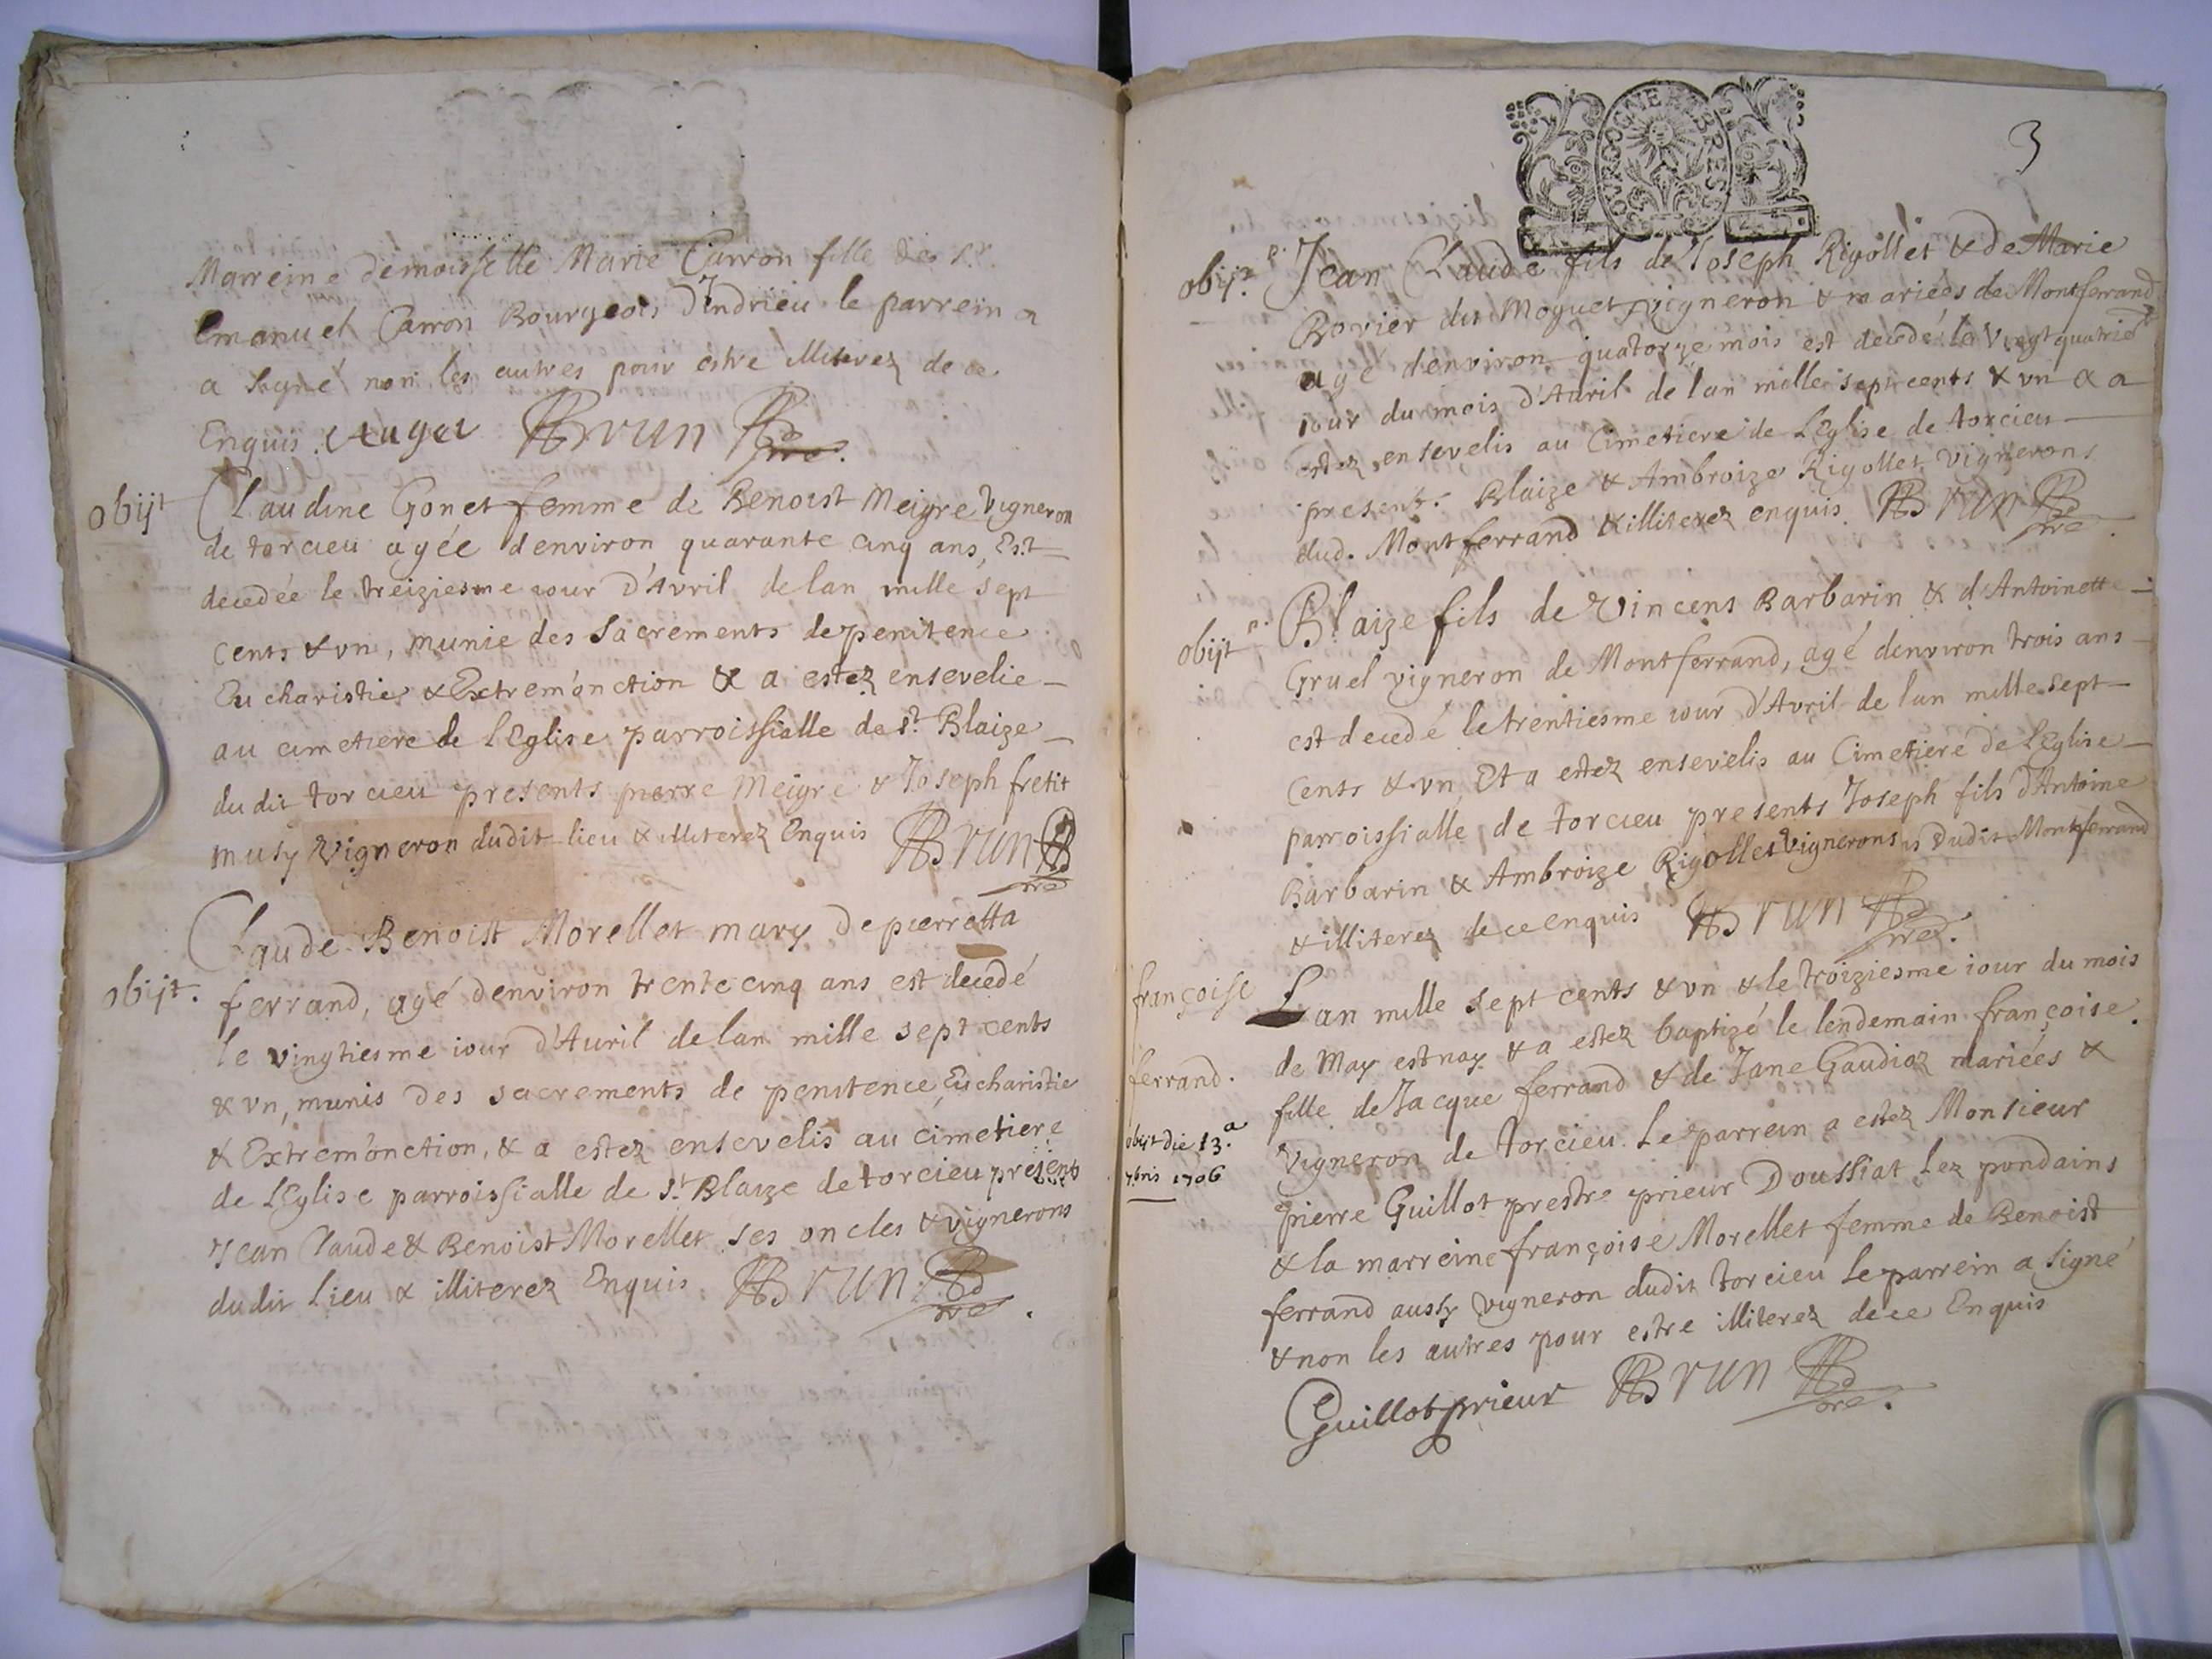 Marreine demoisselle Marie Carron fille de Sr.
Emanuel Carron Bourgeois D'Indrieu le parrein a
a signé non les autres pour estre illiterez de ce
Enquis. Auger Brun
obijt
Claudine Gonet femme de Benoist Meigre Vigneron
de torcieu agée denviron quarante cinq ans, Est
decedée le treiziesme iour d'Avril de lan mille sept
cents & vn, munie des Sacrements de penitence
Eucharistie & Extremonction & a estez ensevelie
au cimetiere de LEglise parroissialle de St. Blaize
du dit torcieu presents pierre Meigre & Joseph fretit
musy Vigneron dudit lieu & illiterez Enquis Brun
obijt.
Claude Benoist Morellet mary de pierretta
ferrand, agé denviron trente cinq ans est decedé
le vingtiesme iour d'Auril de lan mille sept cents
& vn, munis des sacrements de penitence, Eucharistie
& Extremonction, & a estez ensevelis au cimetiere
de LEglise parroissialle de St. Blaize de torcieu presents
Jean Claude & Benoist Morellet ses oncles & vignerons
dudit Lieu & illiterez Enquis. Brun
BOVRGOGNE BRESSE
3
obijt p.
Jean Claude fils de Joseph Rigollet & de Marie
Bovier dit Moguet vigneron & mariées de Montferrand
agé denviron quatorze mois est decedé le Vingt quatrie
iour du mois d'Auril de lan mille sept cents & vn & a
estez ensevelis au Cimetiere de LEglise de torcieu
presents Blaize & Ambroize Rigollet Vignerons
dud. Montferrand & illiterez enquis Brun
obijt p.
Blaize fils de Vincens Barbarin & d'Antoinette
Gruel vigneron de Montferrand, agé denviron trois ans
est decedé le trentiesme iour d'Avril de lan mille sept
Cents & vn Et a estez ensevelis au Cimetiere de LEglise
parroissialle de torcieu presents Joseph fils d'Antoine
Barbarin & Ambroize Rigollet Vignerons dudit Montferrand
& illiterez de ce enquis Brun
françoise
ferrand.
obijt die 13.a
7bris 1706
Lan mille sept cents & vn & le troiziesme iour du mois
de May est nay & a estez baptizé le lendemain françoise
fille de Jacque ferrand & de Jane Gaudioz mariées &
Vigneron de torcieu Le parrein a estez Monsieur
pierre Guillot prestre prieur Doussiat Lez pondains
& la marreine françoise Morellet femme de Benoist
ferrand aussy vigneron dudit torcieu Le parrein a signé
& non les autres pour estre illiterez de ce Enquis
Guillot prieur Brun